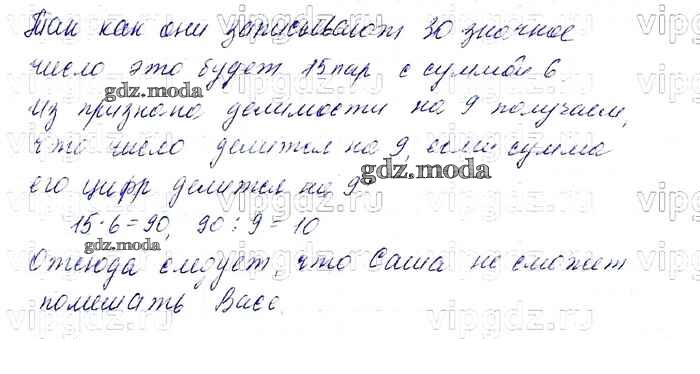 Так как они записывают 30 значное
число это будет 15 пар с суммой 6.
gdz.moda
Из признака делимости на 9 получаем,
что число делится на 9, если сумма
его цифр делится на 9
gdz.moda
15·6=90, 90:9=10
gdz.moda
Отсюда следует, что Саша не сможет
помешать Васе.
vipgdz.ru